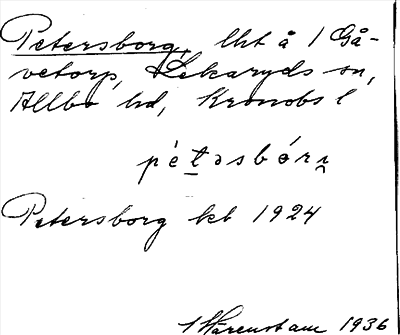 Petersborg, lht å 1 Gå-
vetorp, Lekaryds sn,
Allbo hd, Kronobs l
pétəsbórı
Petersborg kb 1924
Warenstam 1936